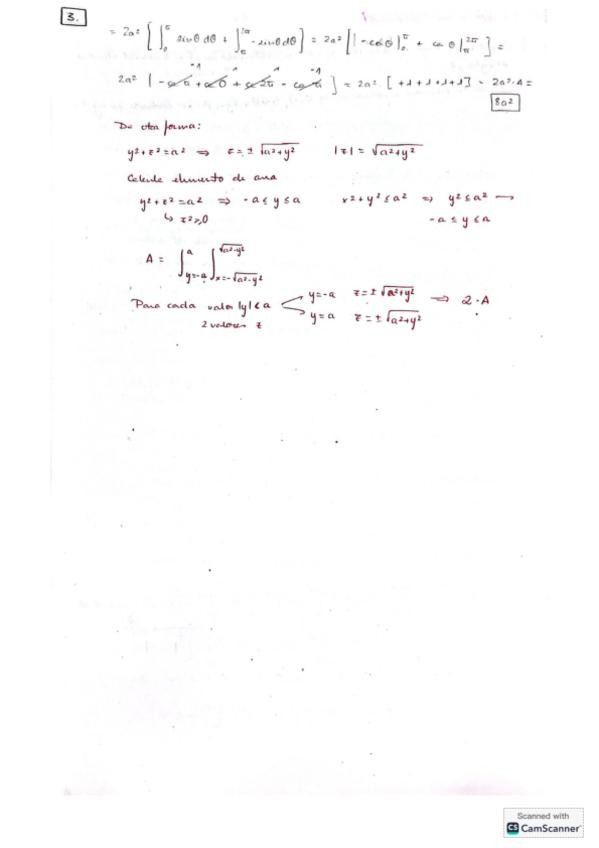 3.
= 2a² [ ∫₀^π sinθ dθ + ∫_π^2π -sinθ dθ ] = 2a² [ |-cosθ|₀^π + cosθ|_π^2π ] =
2a² | -cos π + cos 0 + cos 2π - cos π ] = 2a² · [ +1+1+1+1 ] = 2a²·4 =
8a²
De otra forma:
y²+z²=a² ⇒ z=± √a²+y² |z| = √a²+y²
Calcule elemento de area
y²+z²=a² ⇒ -a≤y≤a x²+y²≤a² ⇒ y²≤a² →
↳ z²≥0 -a≤y≤a
A = ∫_{y=-a}^{a} ∫_{x=-√a²-y²}^{√a²-y²}
Para cada valor |y|<a y=-a z=±√a²+y² ⇒ 2·A
2 valores z y=a z=±√a²+y²
Scanned with
CS CamScanner